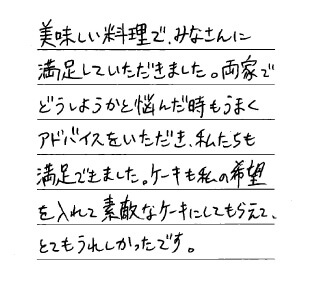 美味しい料理で、みなさんに
満足していただきました。両家で
どうしようかと悩んだ時もうまく
アドバイスをいただき、私たちも
満足できました。ケーキも私の希望
を入れて素敵なケーキにしてもらえて、
とてもうれしかったです。